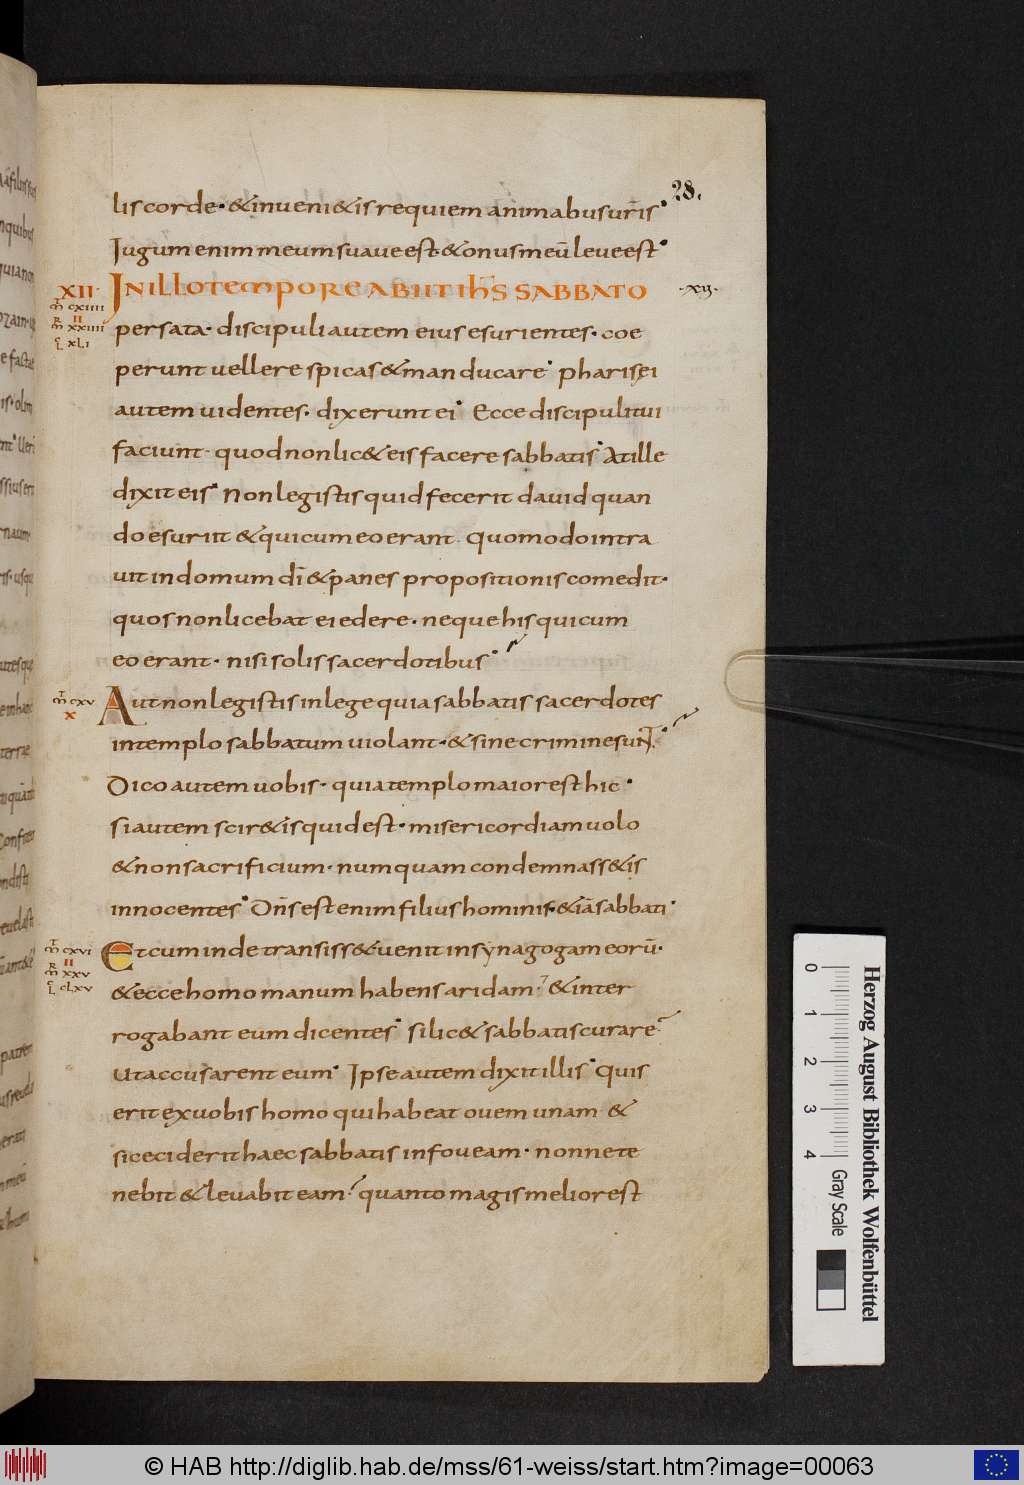 28.
lis corde · & inueni&is requiem animabus uris
Jugum enim meum suaue est · & onus meū leue est
XII · JN ILLO TEMPORE ABIIT IHS SABBATO · xij ·
per sata · discipuli autem eius esurientes · coe
perunt uellere spicas & manducare · pharisęi
autem uidentes · dixerunt ei · Ecce discipuli tui
faciunt · quod non lic& eis facere sabbatis · At ille
dixit eis · Non legistis quid fecerit dauid quan
do esuriit & qui cum eo erant · Quomodo intra
uit in domum dī & panes propositionis comedit ·
quos non licebat ei edere · neque his qui cum
eo erant · nisi solis sacerdotibus
Aut non legistis in lege quia sabbatis sacerdotes
in templo sabbatum uiolant · & sine crimine sunt ·
Dico autem uobis · quia templo maior est hic ·
si autem scir&is quid est · misericordiam uolo
& non sacrificium · numquam condemnass&is
innocentes · Dn̄s est enim filius hominis · &iā sabbati ·
Et cum inde transiss& uenit in synagogam eorū ·
& ecce homo manum habens aridam · & inter
rogabant eum dicentes · si lic& sabbatis curare
Ut accusarent eum · Ipse autem dixit illis · Quis
erit ex uobis homo qui habeat ouem unam &
si ceciderit haec sabbatis in foueam · nonne te
nebit & leuabit eam? quanto magis melior est
cxiiii
II
xxiiii
xLi
cxv
x
cxvi
II
xxv
cLxv
0 1 2 3 4
Gray Scale
Herzog August Bibliothek Wolfenbüttel
© HAB http://diglib.hab.de/mss/61-weiss/start.htm?image=00063